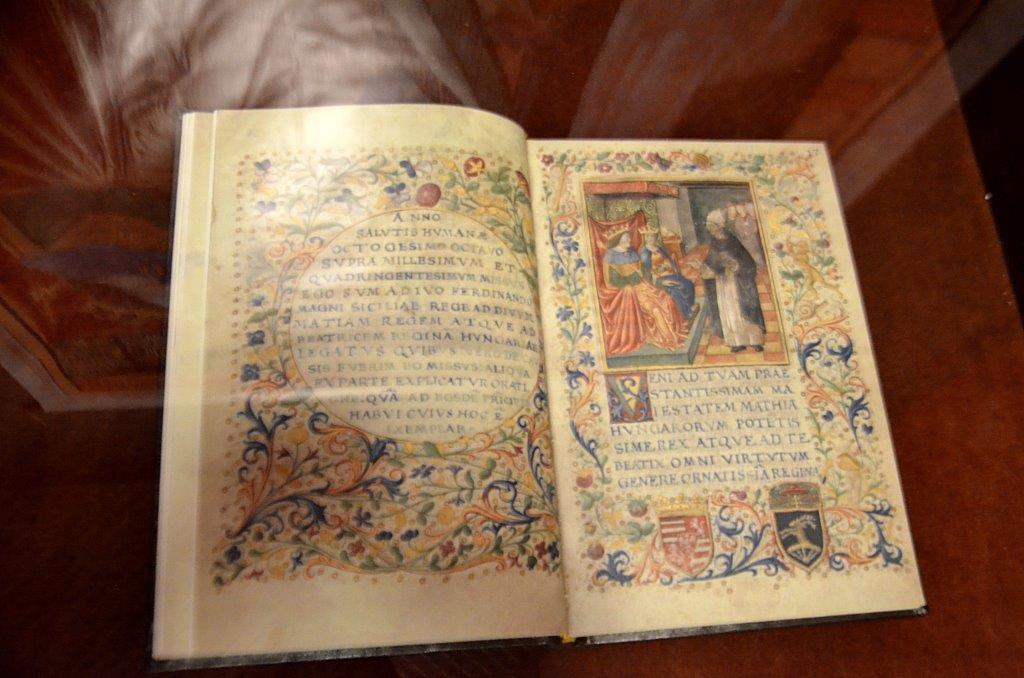 ANNO
SALUTIS HUMANÆ
OCTOGESIMO OCTAVO
SVPRA MILLESIMVM ET
QVADRINGENTESIMVM MISSVS
EGO SVM A DIVO FERDINANDO
MAGNI SICILIAE REGE AD DIVVM
MATIAM REGEM ATQVE AD
BEATRICEM REGINĀ HVNGARIAE
LEGATVS QVIBVS VERO DE CAV
SIS FVERIM EO MISSVS: ALIQVA
EX PARTE EXPLICATVR ORATI
ONE: QVĀ AD EOSDĒ
HABVI CVIVS HOC Ē
EXEMPLAR
VENI AD TVAM PRAE
STANTISSIMAM MA
IESTATEM MATHIA
HVNGARORVM POTETIS
SIME REX ATQVE AD TE
BEATIX OMNI VIRTVTVM
GENERE ORNATISSĪA REGINA